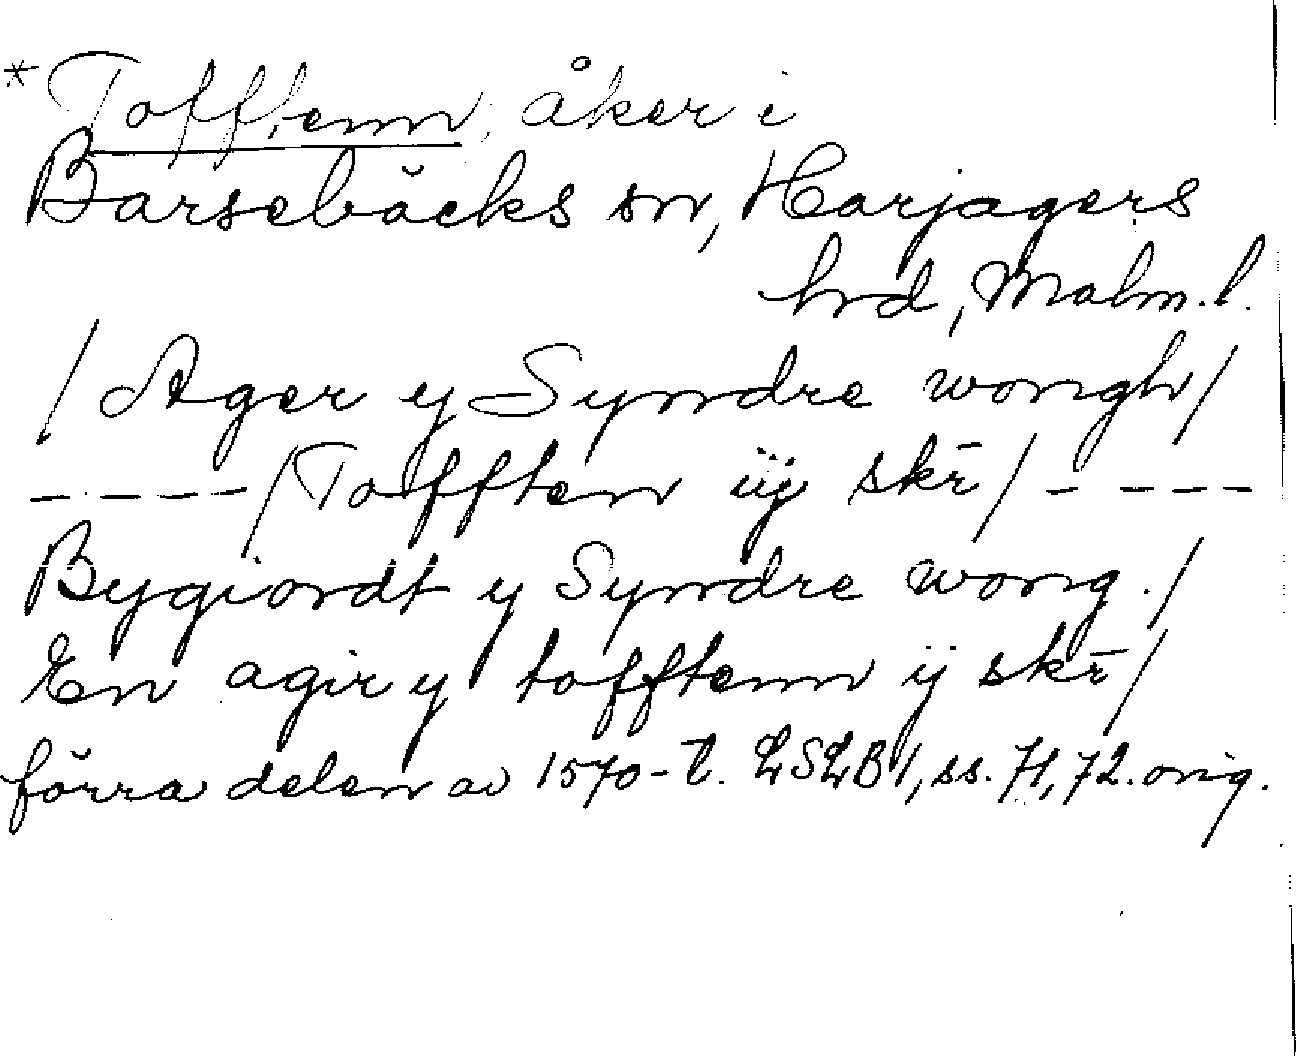 * Tofftenn, åker i
Barsebäcks sn, Harjagers
hrd, Malm. l.
/ Ager y Syndre wongh /
----- / Tofften iij skr̄ / ----
Bygiordt y Syndre wong. /
En agir y tofftenn ij skr̄ /
förra delen av 1570-t. LSLB 1, ss. 71, 72. orig.